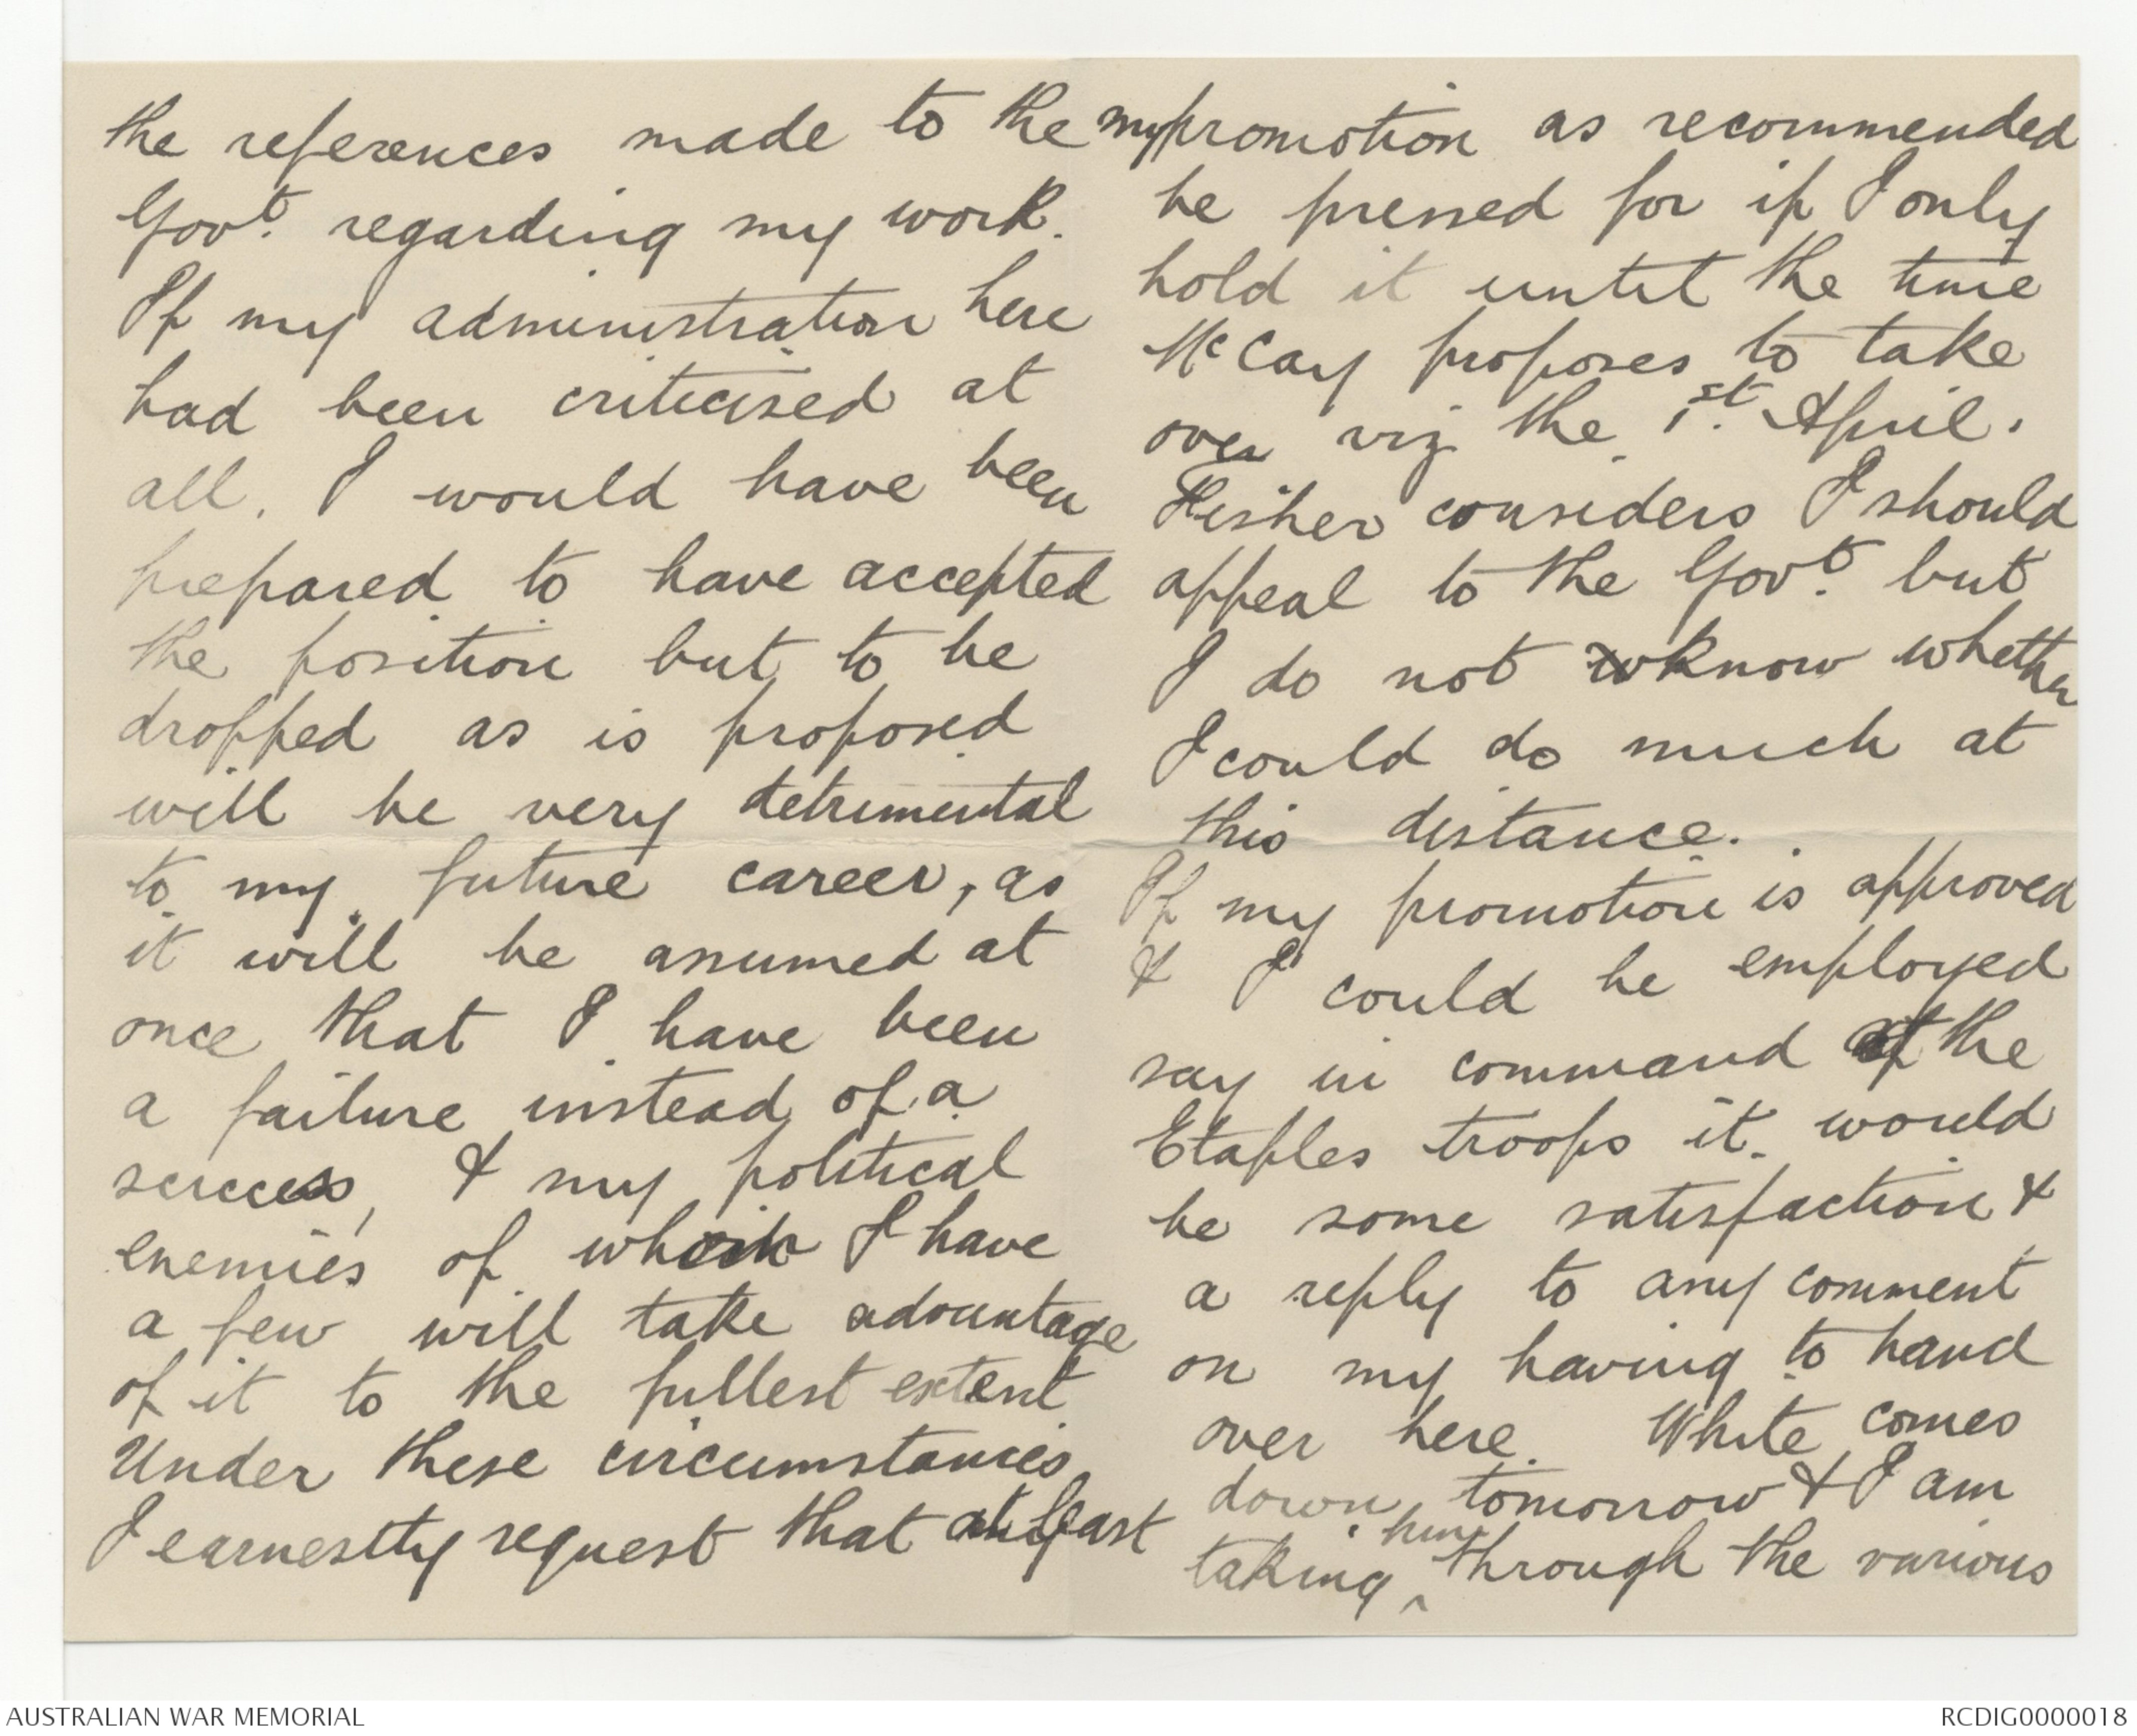 the references made to the
Govt. regarding my work.
If my administration here
had been criticised at
all. I would have been
prepared to have accepted
the position but to be
dropped as is proposed
will be very detrimental
to my future career, as
it will be assumed at
once that I have been
a failure instead of a
success, & my political
enemies of whom I have
a few will take advantage
of it to the fullest extent
Under these circumstances
I earnestly request that at least
my promotion as recommended
be pressed for if I only
hold it until the time
McCay proposes to take
over viz the 1st. April.
Fisher considers I should
appeal to the Govt. but
I do not know whether
I could do much at
this distance.
If my promotion is approved
& I could be employed
say in command of the
Etaples troops it would
be some satisfaction &
a reply to any comment
on my having to hand
over here. White comes
down tomorrow & I am
taking ^him through the various
AUSTRALIAN WAR MEMORIAL
RCDIG0000018